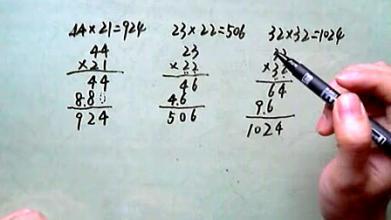 44×21=924
44
×21
44
88
924
23×22=506
23
×22
46
46
506
32×32=1024
×32
64
96
1024